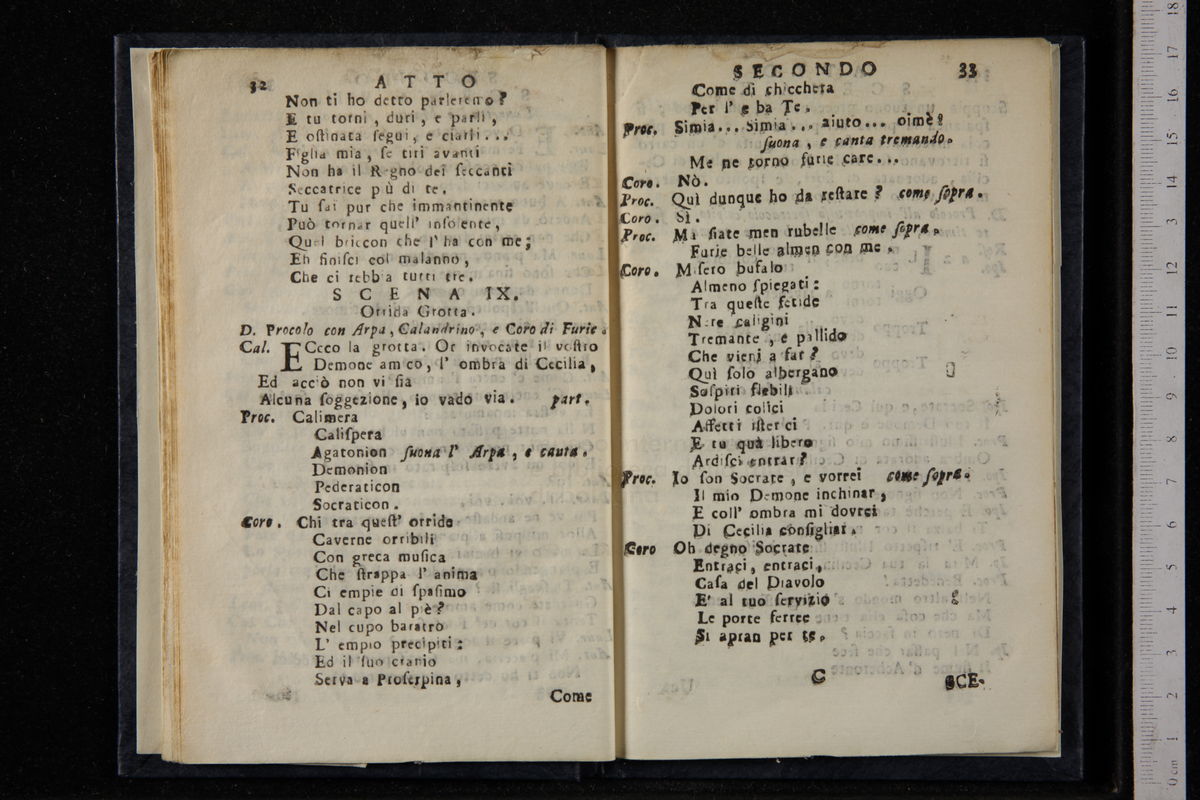 32 ATTO
Non ti ho detto parleremo?
E tu torni, duri, e parli,
E oſtinata ſegui, e ciarli...
Figlia mia, ſe tiri avanti
Non ha il Regno dei ſeccanti
Seccatrice più di te.
Tu ſai pur che immantinente
Può tornar quell' inſolente,
Quel briccon che l' ha con me;
Eh finiſci col malanno,
Che ci rebb a tutti tre.
SCENA IX.
Orrida Grotta.
D. Procolo con Arpa, Calandrino, e Coro di Furie.
Cal. ECceo la grotta. Or invocate il voſtro
Demone amico, l' ombra di Cecilia,
Ed acciò non vi ſia
Alcuna ſoggezione, io vado via. part.
Proc. Calimera
Caliſpera
Agatonion ſuona l' Arpa, e canta.
Demonion
Pederaticon
Socraticon.
Coro. Chi tra queſt' orride
Caverne orribili
Con greca muſica
Che ſtrappa l' anima
Ci empie di ſpaſimo
Dal capo al piè?
Nel cupo baratro
L' empio precipiti:
Ed il ſuo cranio
Serva a Proſerpina,
Come
SECONDO 33
Come di chicchera
Per l' e ba Te.
Proc. Simia... Simia... aiuto... oimè!
ſuona, e canta tremando.
Me ne torno furie care...
Coro. Nò.
Proc. Quì dunque ho da reſtare? come ſopra.
Coro. Sì.
Proc. Ma ſiate men rubelle come ſopra.
Furie belle almen con me.
Coro. Miſero bufalo
Almeno ſpiegati:
Tra queſte fetide
Nere caligini
Tremante, e pallido
Che vieni a far?
Quì ſolo albergano
Soſpiri flebili
Dolori colici
Affetti iſterici
E tu quà libero
Ardiſci entrar?
Proc. Io ſon Socrate, e vorrei come ſopra.
Il mio Demone inchinar,
E coll' ombra mi dovrei
Di Cecilia conſigliar.
Coro Oh degno Socrate
Entraci, entraci,
Caſa del Diavolo
E' al tuo ſervizio
Le porte ferree
Si apran per te.
C SCE-